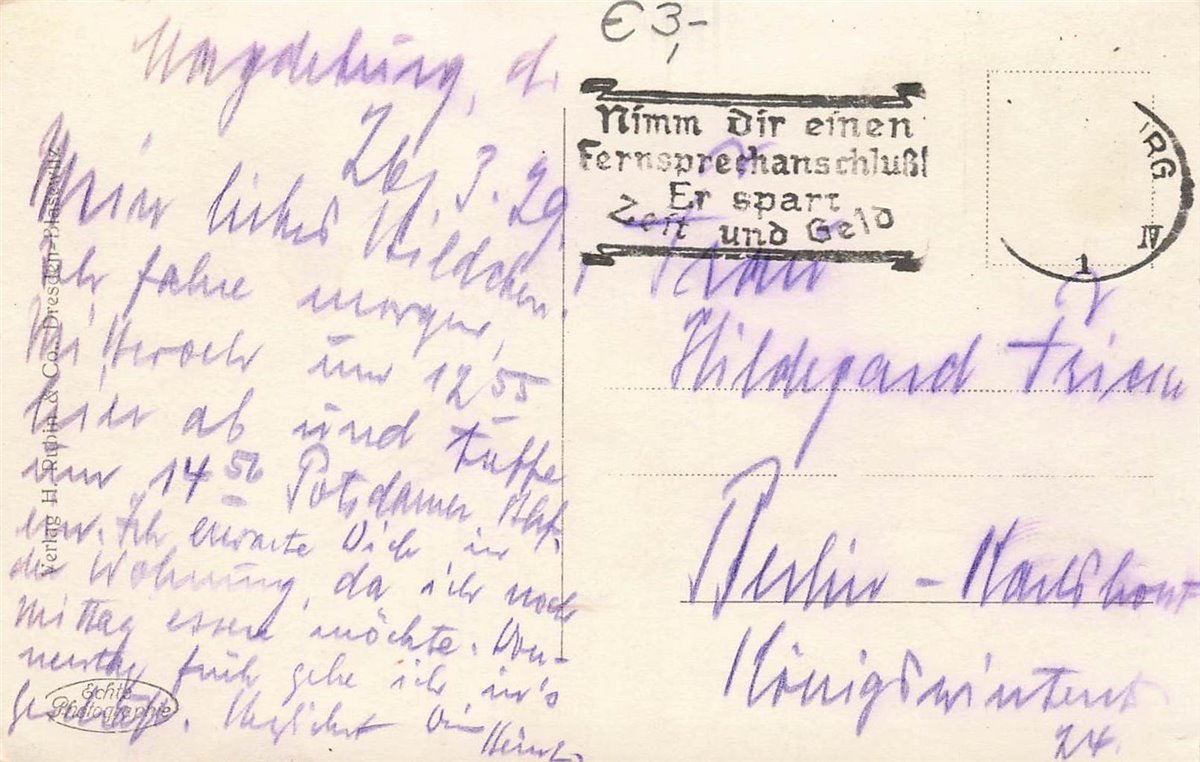 € 3,-
Magdeburg, d.
26. 3. 29.
Mein liebes Hildchen!
Ich fahre morgen,
Mittwoch um 12 55
hier ab und treffe
um 14 56 Potsdamer Bhf.
ein. Ich erwarte Dich in
der Wohnung, da ich noch
Mittag essen möchte. Don-
nerstag früh gehe ich in's
Geschäft. Herzlichst Dein
Heinz.
Verlag H. Rubin & Co., Dresden-Blasewitz
Echte
Photographie
Nimm dir einen
Fernsprechanschluß!
Er spart
Zeit und Geld
RG
IV
1
Frau
Hildegard
Berlin - Karlshorst
Königswinterst
24.